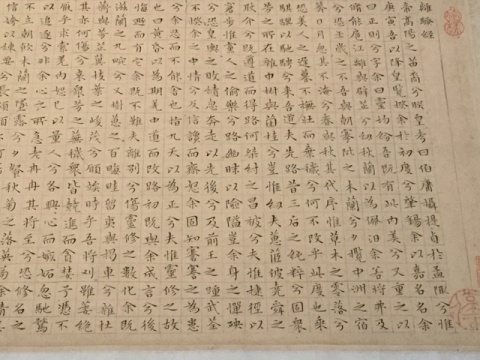 離騷經
帝高陽之苗裔兮朕皇考曰伯庸攝提貞於孟陬兮惟
庚寅吾以降皇覽揆余於初度兮肇錫余以嘉名名余
曰正則兮字余曰靈均紛吾既有此內美兮又重之以
修能扈江離與辟芷兮紉秋蘭以為佩汩余若將弗及
兮恐年歲之不吾與朝搴阰之木蘭兮夕攬中洲之宿
莽日月忽其不淹兮春與秋其代序惟草木之零落兮
恐美人之遲暮不撫壯而棄穢兮何不改乎此度也乘
騏驥以馳騁兮來吾道夫先路昔三后之純粹兮固眾
芳之所在雜申椒與菌桂兮豈惟紉夫蕙茝彼堯舜之
耿介兮既遵道而得路何桀紂之昌被兮夫惟捷徑以
窘步惟黨人之偷樂兮路幽昧以險隘豈余身之憚殃
兮恐皇輿之敗績忽奔走以先後兮及前王之踵武荃
不揆余之中情兮反信讒而齌怒余固知謇謇之為患
兮余忍而不能舍也指九天以為正兮夫惟靈修之故
也曰黃昏以為期羌中道而改路初既與余成言兮後
悔遁而有他余既不難夫離別兮傷靈修之數化余既
滋蘭之九畹兮又樹蕙之百畝畦留夷與揭車兮雜杜
衡與芳芷冀枝葉之峻茂兮願竢時乎吾將刈雖萎絕
其亦何傷兮哀眾芳之蕪穢眾皆競進而貪婪兮憑不
猒乎求索羌內恕己以量人兮各興心而嫉妒忽馳騖
以追逐兮非余心之所急老冉冉其將至兮恐修名之
不立朝飲木蘭之墜露兮夕餐秋菊之落英苟余情其
信姱以練要兮長